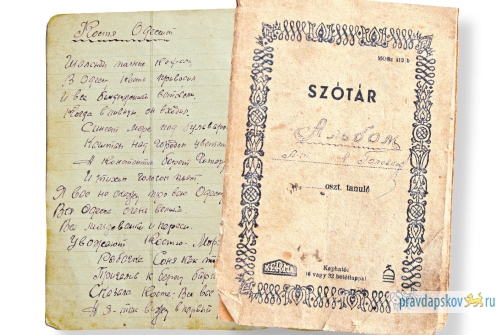 Костя Одессит
Шаланды полные кефали
В Одессу Костя привозил
И все биндюжники вставали
Когда в пивную он входил.
Синеет море над бульваром
Каштан над городом цветет
А Константин берет гитару
И тихим голосом поет
Я вам не скажу за всю Одессу
Вся Одесса очень велика
Но Молдаванка и Пересы
Уважают Костю-Моряка
Рыбачка Соня как-то
Причалив к берегу
Сказала Косте: Все вас
А я
160 Sz. 113 b
SZÓTÁR
Альбом
oszt. tanuló
Kapható:
16 vagy 32 betétlappal
pravdapskov.ru